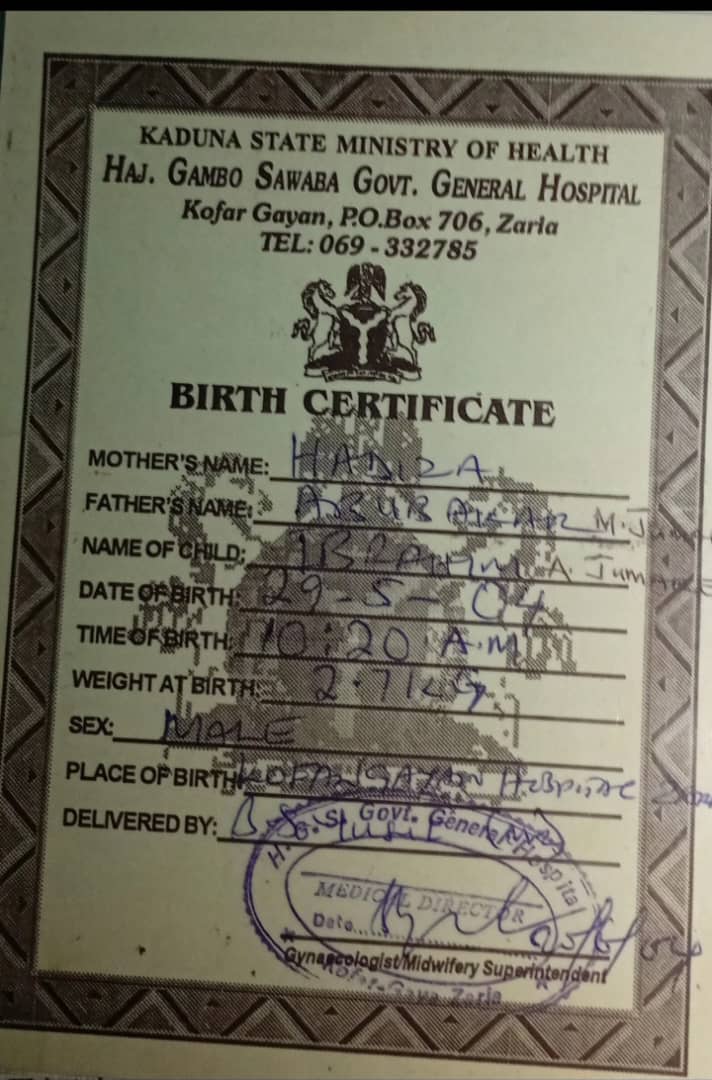 KADUNA STATE MINISTRY OF HEALTH
HAJ. GAMBO SAWABA GOVT. GENERAL HOSPITAL
Kofar Gayan, P.O.Box 706, Zaria
TEL: 069 - 332785
BIRTH CERTIFICATE
MOTHER'S NAME: HADIZA
FATHER'S NAME: ABUBAKAR M.
NAME OF CHILD: IBRAHIM A. Jumare
DATE OF BIRTH: 29-5-04
TIME OF BIRTH: 10:20 A.M
WEIGHT AT BIRTH: 2.71KG
SEX: MALE
PLACE OF BIRTH KOFAN GAYAN HOSPITAL
DELIVERED BY:
H. G. S. Govt. General Hospital
MEDICAL DIRECTOR
Date
Gynaecologist/Midwifery Superintendent
Kofar-Gaya Zaria